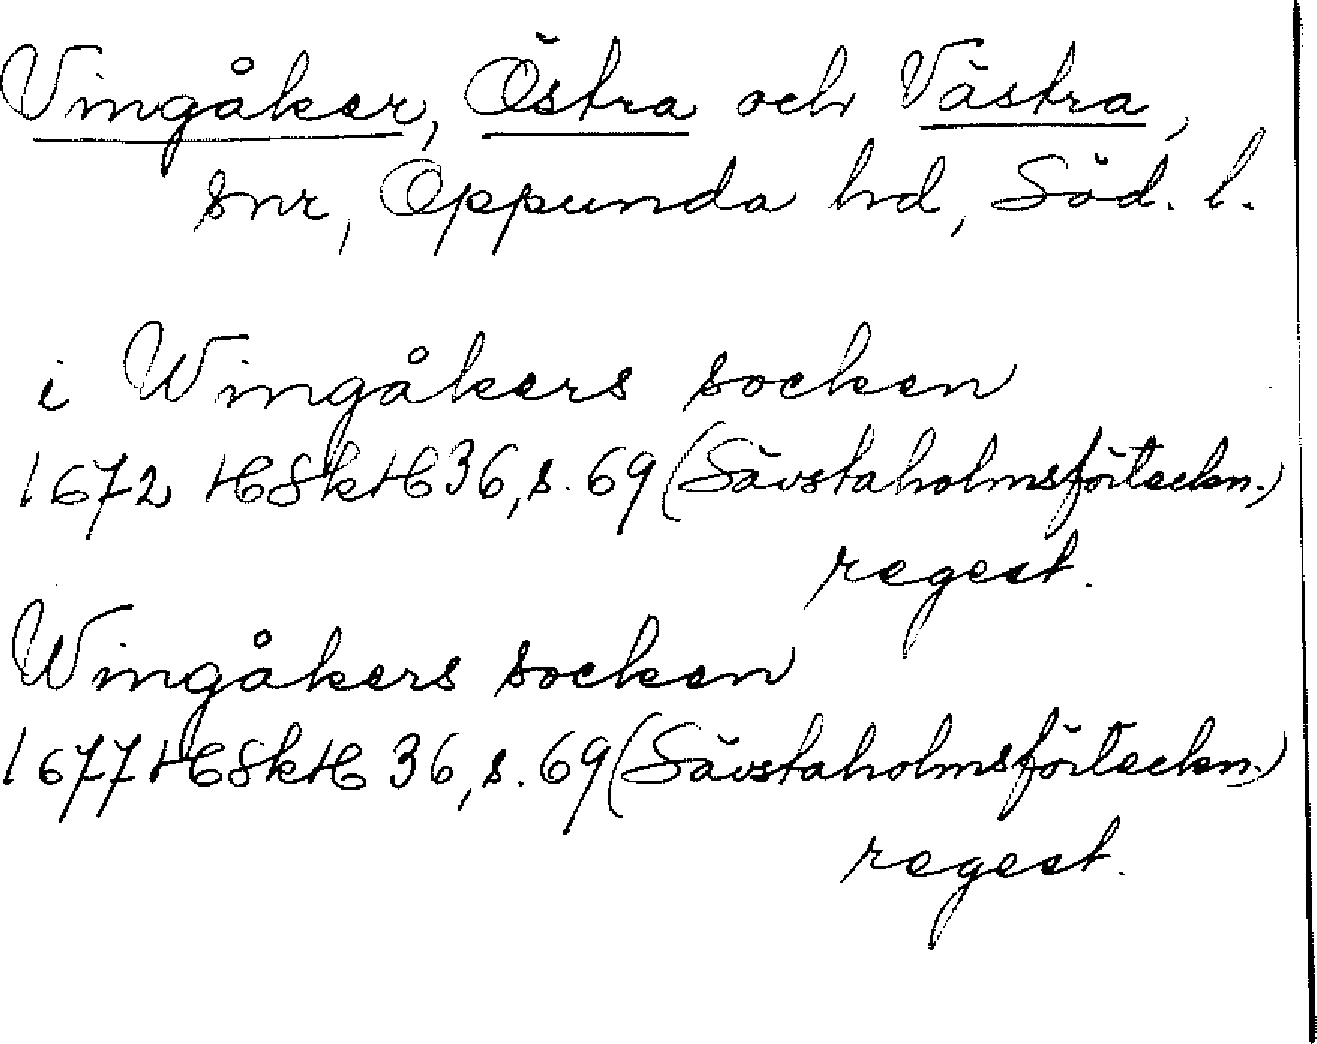 Vingåker, Östra och Västra,
snr, Oppunda hd, Söd. l.
i Wingåkers socken
1672 HSkH 36, s. 69 (Sävstaholmsförteckn.)
regest.
Wingåkers socken
1677 HSkH 36, s. 69 (Sävstaholmsförteckn.)
regest.